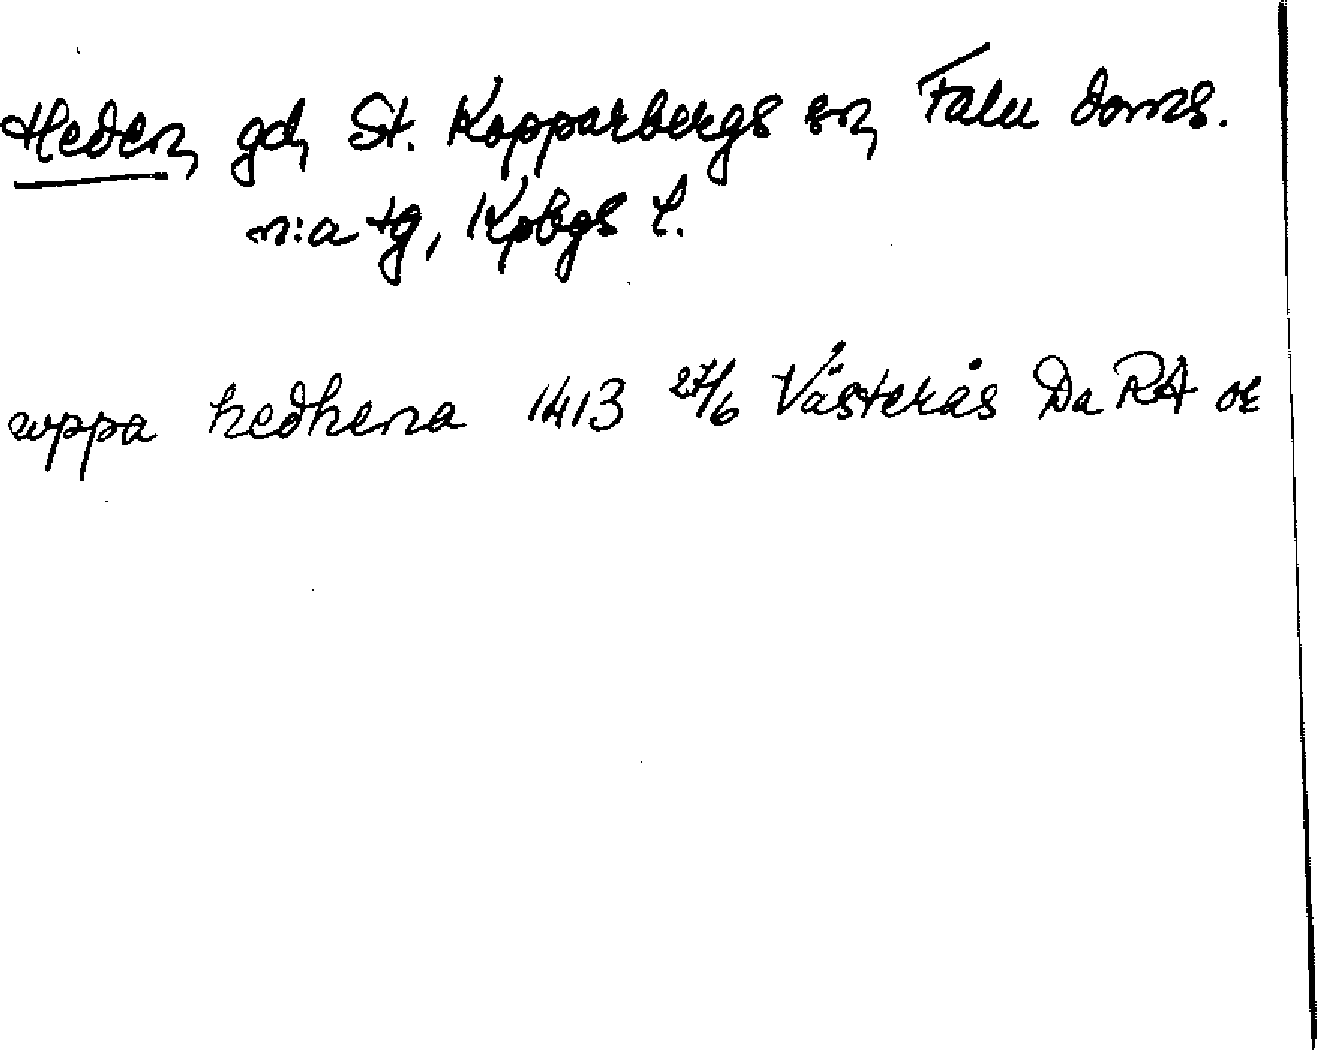 Heden, gd, St. Kopparbergs sn, Falu doms.
n:a tg, Kpbgs l.
uppa hedhena 1413 27/6 Västerås Da RA or